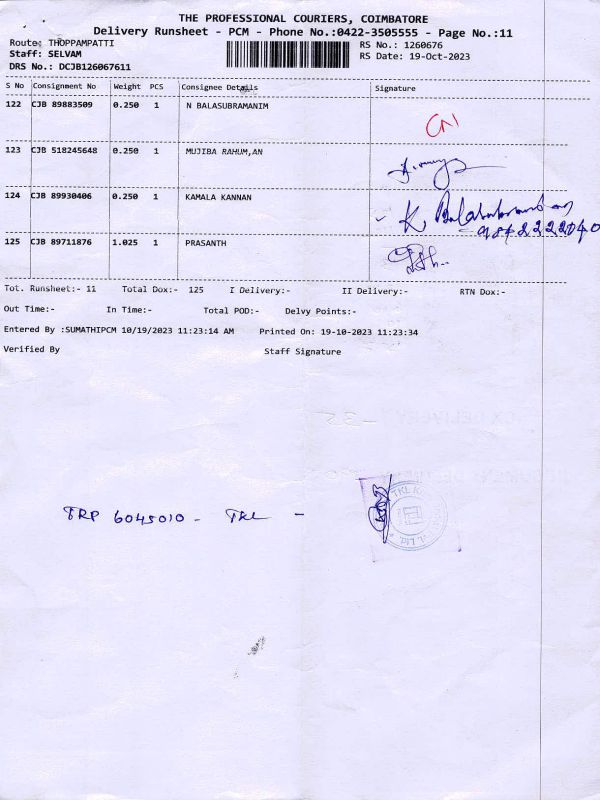 THE PROFESSIONAL COURIERS, COIMBATORE
Delivery Runsheet - PCM - Phone No.:0422-3505555 - Page No.:11
Route: THOPPAMPATTI
RS No.: 1260676
Staff: SELVAM
RS Date: 19-Oct-2023
DRS No.: DCJB126067611
S No Consignment No Weight PCS Consignee Details Signature
122 CJB 89883509 0.250 1 N BALASUBRAMANIM
123 CJB 518245648 0.250 1 MUJIBA RAHUM,AN
124 CJB 89930406 0.250 1 KAMALA KANNAN
K
125 CJB 89711876 1.025 1 PRASANTH
Tot. Runsheet:- 11 Total Dox:- 125 I Delivery:- II Delivery:- RTN Dox:-
Out Time:- In Time:- Total POD:- Delvy Points:-
Entered By :SUMATHIPCM 10/19/2023 11:23:14 AM Printed On: 19-10-2023 11:23:34
Verified By Staff Signature
TRP 6045010 - TKL -
TKL